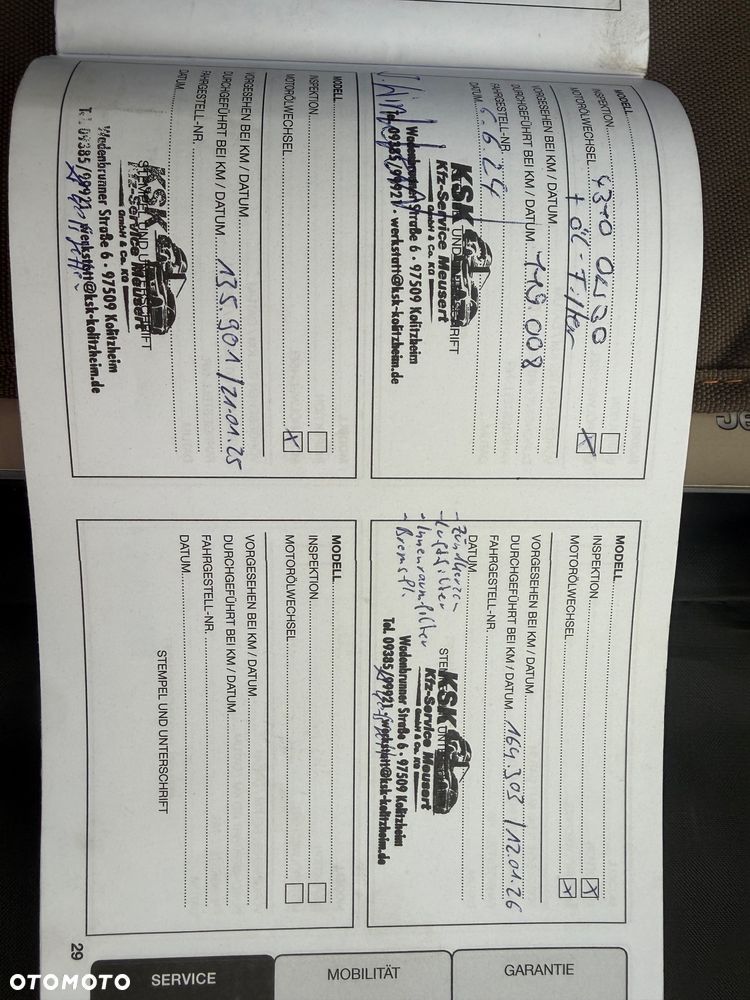 MODELL
INSPEKTION
MOTORÖLWECHSEL 4310 0W30
+ ÖL-Filter
VORGESEHEN BEI KM / DATUM
DURCHGEFÜHRT BEI KM / DATUM 119.008
FAHRGESTELL-NR.
DATUM 6.6.24
STEMPEL UND UNTERSCHRIFT
KSK
Kfz-Service Meusert
GmbH & Co. KG
Wadenbrunner Straße 6 · 97509 Kolitzheim
Tel. 09385/99921 · werkstatt@ksk-kolitzheim.de
MODELL
INSPEKTION
MOTORÖLWECHSEL
VORGESEHEN BEI KM / DATUM
DURCHGEFÜHRT BEI KM / DATUM 164.303 / 12.01.26
FAHRGESTELL-NR.
DATUM
- Zündkerzen
- Luftfilter
- Innenraumfilter
- Bremsfl.
STEMPEL UND UNTERSCHRIFT
KSK
Kfz-Service Meusert
GmbH & Co. KG
Wadenbrunner Straße 6 · 97509 Kolitzheim
Tel. 09385/99921 · werkstatt@ksk-kolitzheim.de
MODELL
INSPEKTION
MOTORÖLWECHSEL
VORGESEHEN BEI KM / DATUM
DURCHGEFÜHRT BEI KM / DATUM 135.901 / 21.01.25
FAHRGESTELL-NR.
DATUM
STEMPEL UND UNTERSCHRIFT
KSK
Kfz-Service Meusert
GmbH & Co. KG
Wadenbrunner Straße 6 · 97509 Kolitzheim
Tel. 09385/99921 · werkstatt@ksk-kolitzheim.de
MODELL
INSPEKTION
MOTORÖLWECHSEL
VORGESEHEN BEI KM / DATUM
DURCHGEFÜHRT BEI KM / DATUM
FAHRGESTELL-NR.
DATUM
STEMPEL UND UNTERSCHRIFT
29
GARANTIE
MOBILITÄT
SERVICE
OTOMOTO